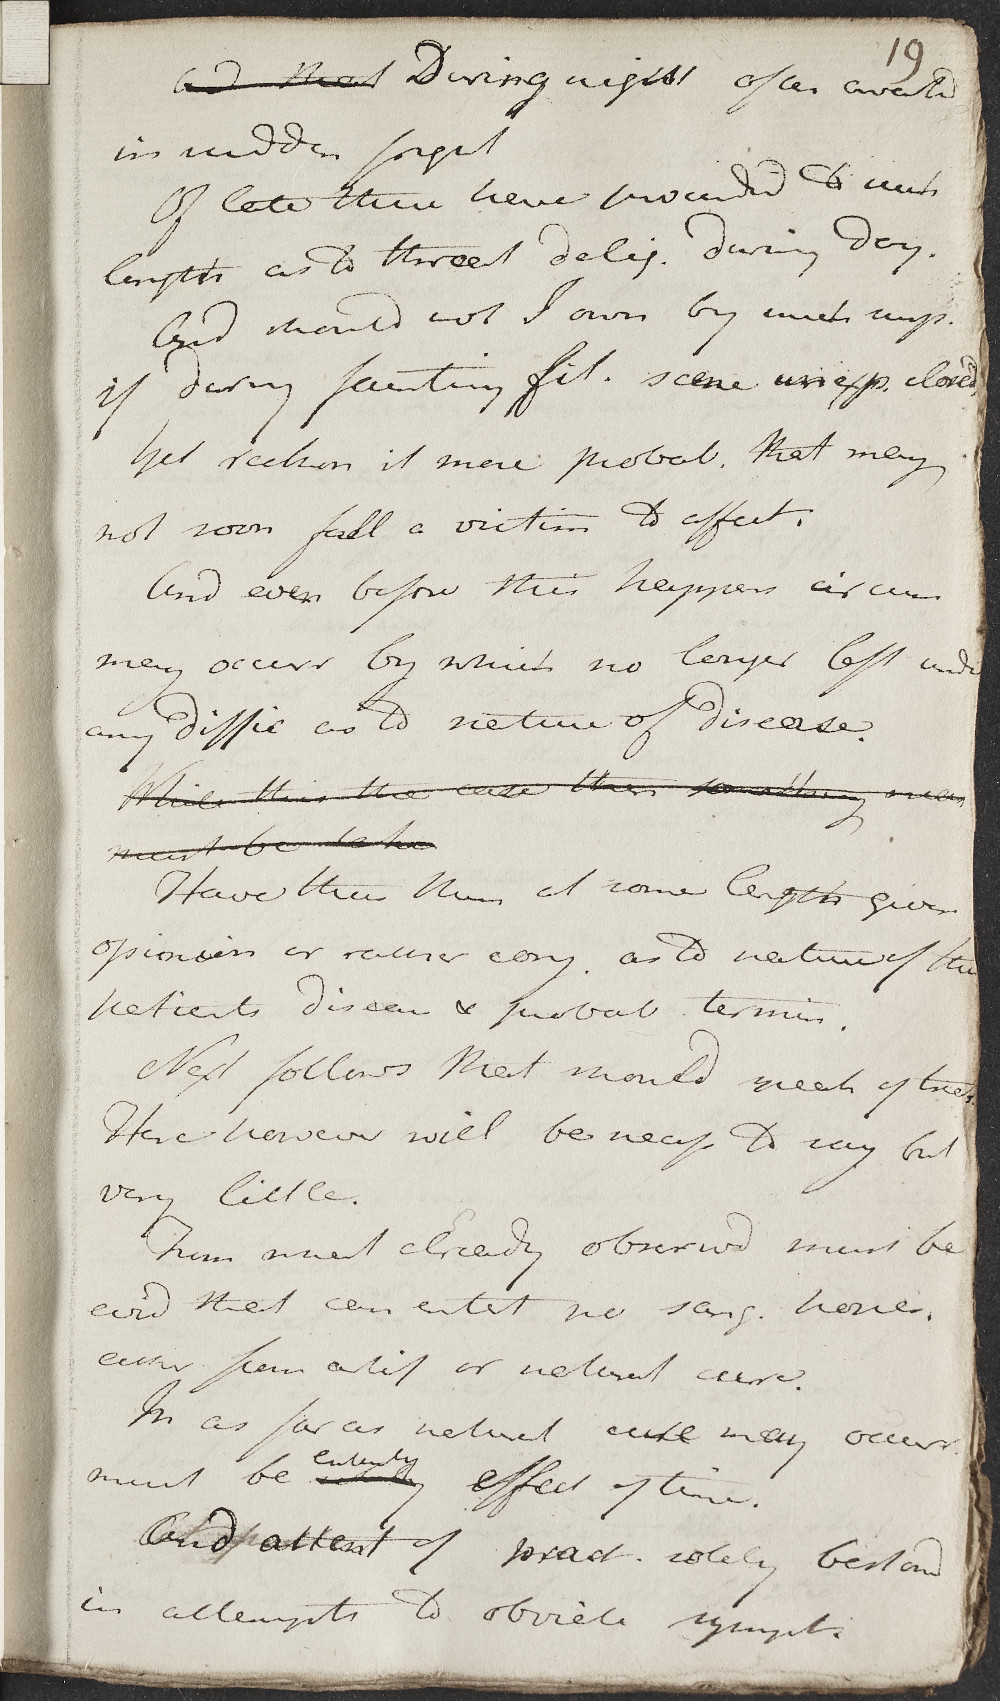 19
and that During night often awake
in sudden fright
Of late these have proceeded to such
length as to threat delig. during day.
And should not I own by much surp.
if during fainting fit. scene unexp. closed
Yet reckon it more probab. that may
not soon fall a victim to affect.
And even before this happens circum
may occurr by which no longer left under
any diffic as to nature of disease.
While this the case then something more
must be
Have then thus at some length given
opinion or rather conj. as to nature of this
patients disease & probab termin.
Next follows that should speak of treat.
Here however will be necess to say but
very little.
From what already observed must be
evid that can entert no sang. hopes.
either from artif or natural cure.
In as far as natural cure may occurr
must be entirely effect of time.
And attent of pract. solely bestowd
in attempts to obviate sympt.